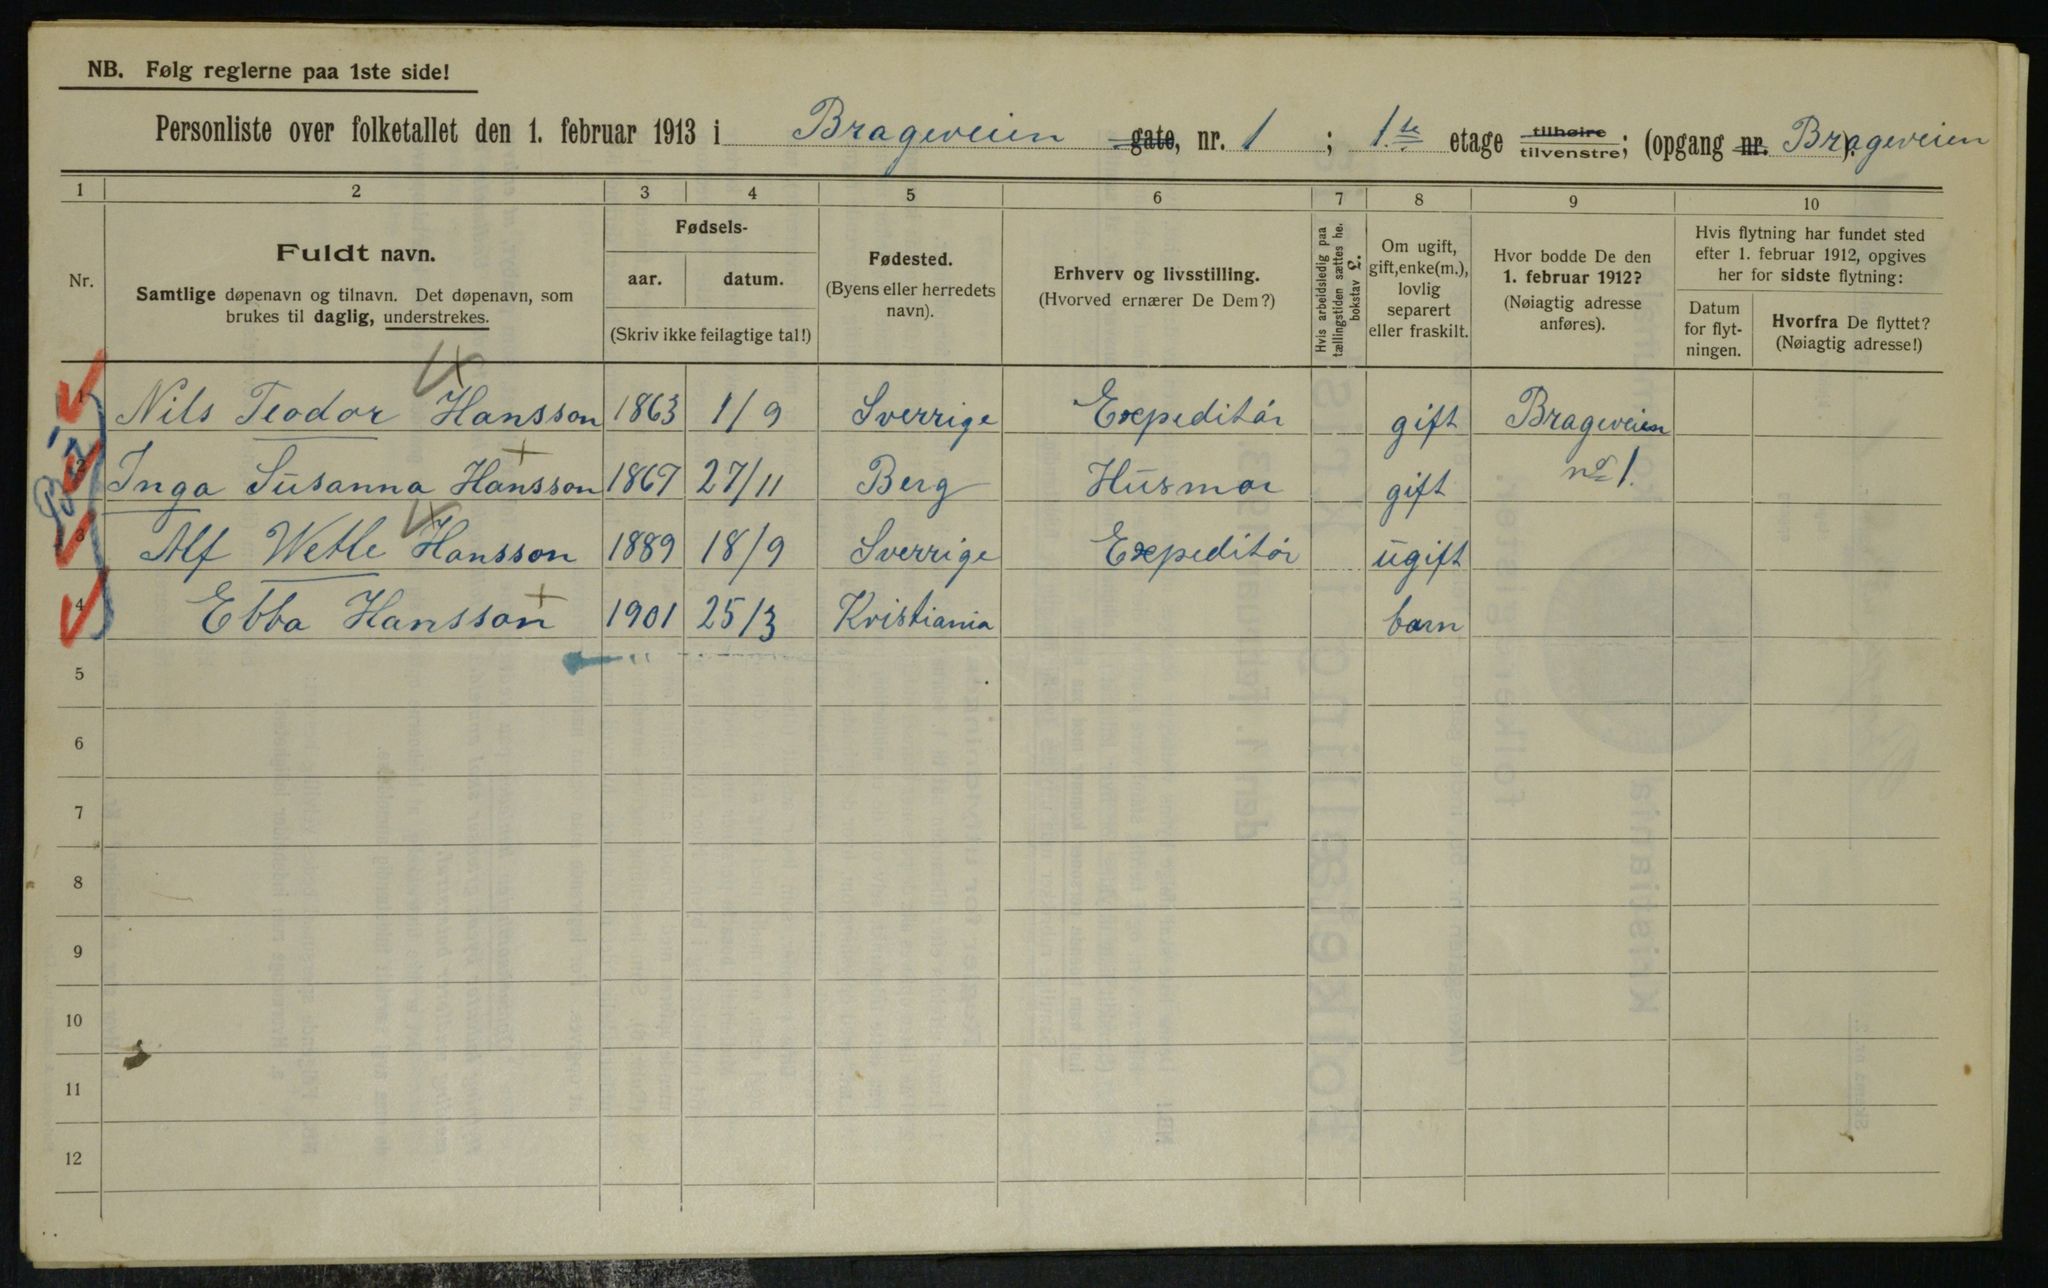 NB. Følg reglerne paa 1ste side!
Personliste over folketallet den 1. februar 1913 i Brageveien gate, nr. 1 ; 1.te etage tilhøire tilvenstre; (opgang nr. Brageveien).
1 2 3 4 5 6 7 8 9 10
Nr.
Fuldt navn.
Samtlige døpenavn og tilnavn. Det døpenavn, som
brukes til daglig, understrekes.
Fødsels-
aar. datum.
(Skriv ikke feilagtige tal!)
Fødested.
(Byens eller herredets
navn).
Erhverv og livsstilling.
(Hvorved ernærer De Dem?)
Hvis arbeidsledig paa
tællingstiden sættes he.
bokstav £.
Om ugift,
gift, enke(m.),
lovlig
separert
eller fraskilt.
Hvor bodde De den
1. februar 1912?
(Nøiagtig adresse
anføres).
Hvis flytning har fundet sted
efter 1. februar 1912, opgives
her for sidste flytning:
Datum
for flyt-
ningen.
Hvorfra De flyttet?
(Nøiagtig adresse!)
1 Nils Teodor Hansson 1863 1/9 Sverrige Expeditør gift Brageveien
2 Inga Susanna Hansson 1867 27/11 Berg Husmor gift no 1.
3 Alf Wetle Hansson 1889 18/9 Sverrige Expeditør ugift
4 Ebba Hansson 1901 25/3 Kristiania barn
5
6
7
8
9
10
11
12